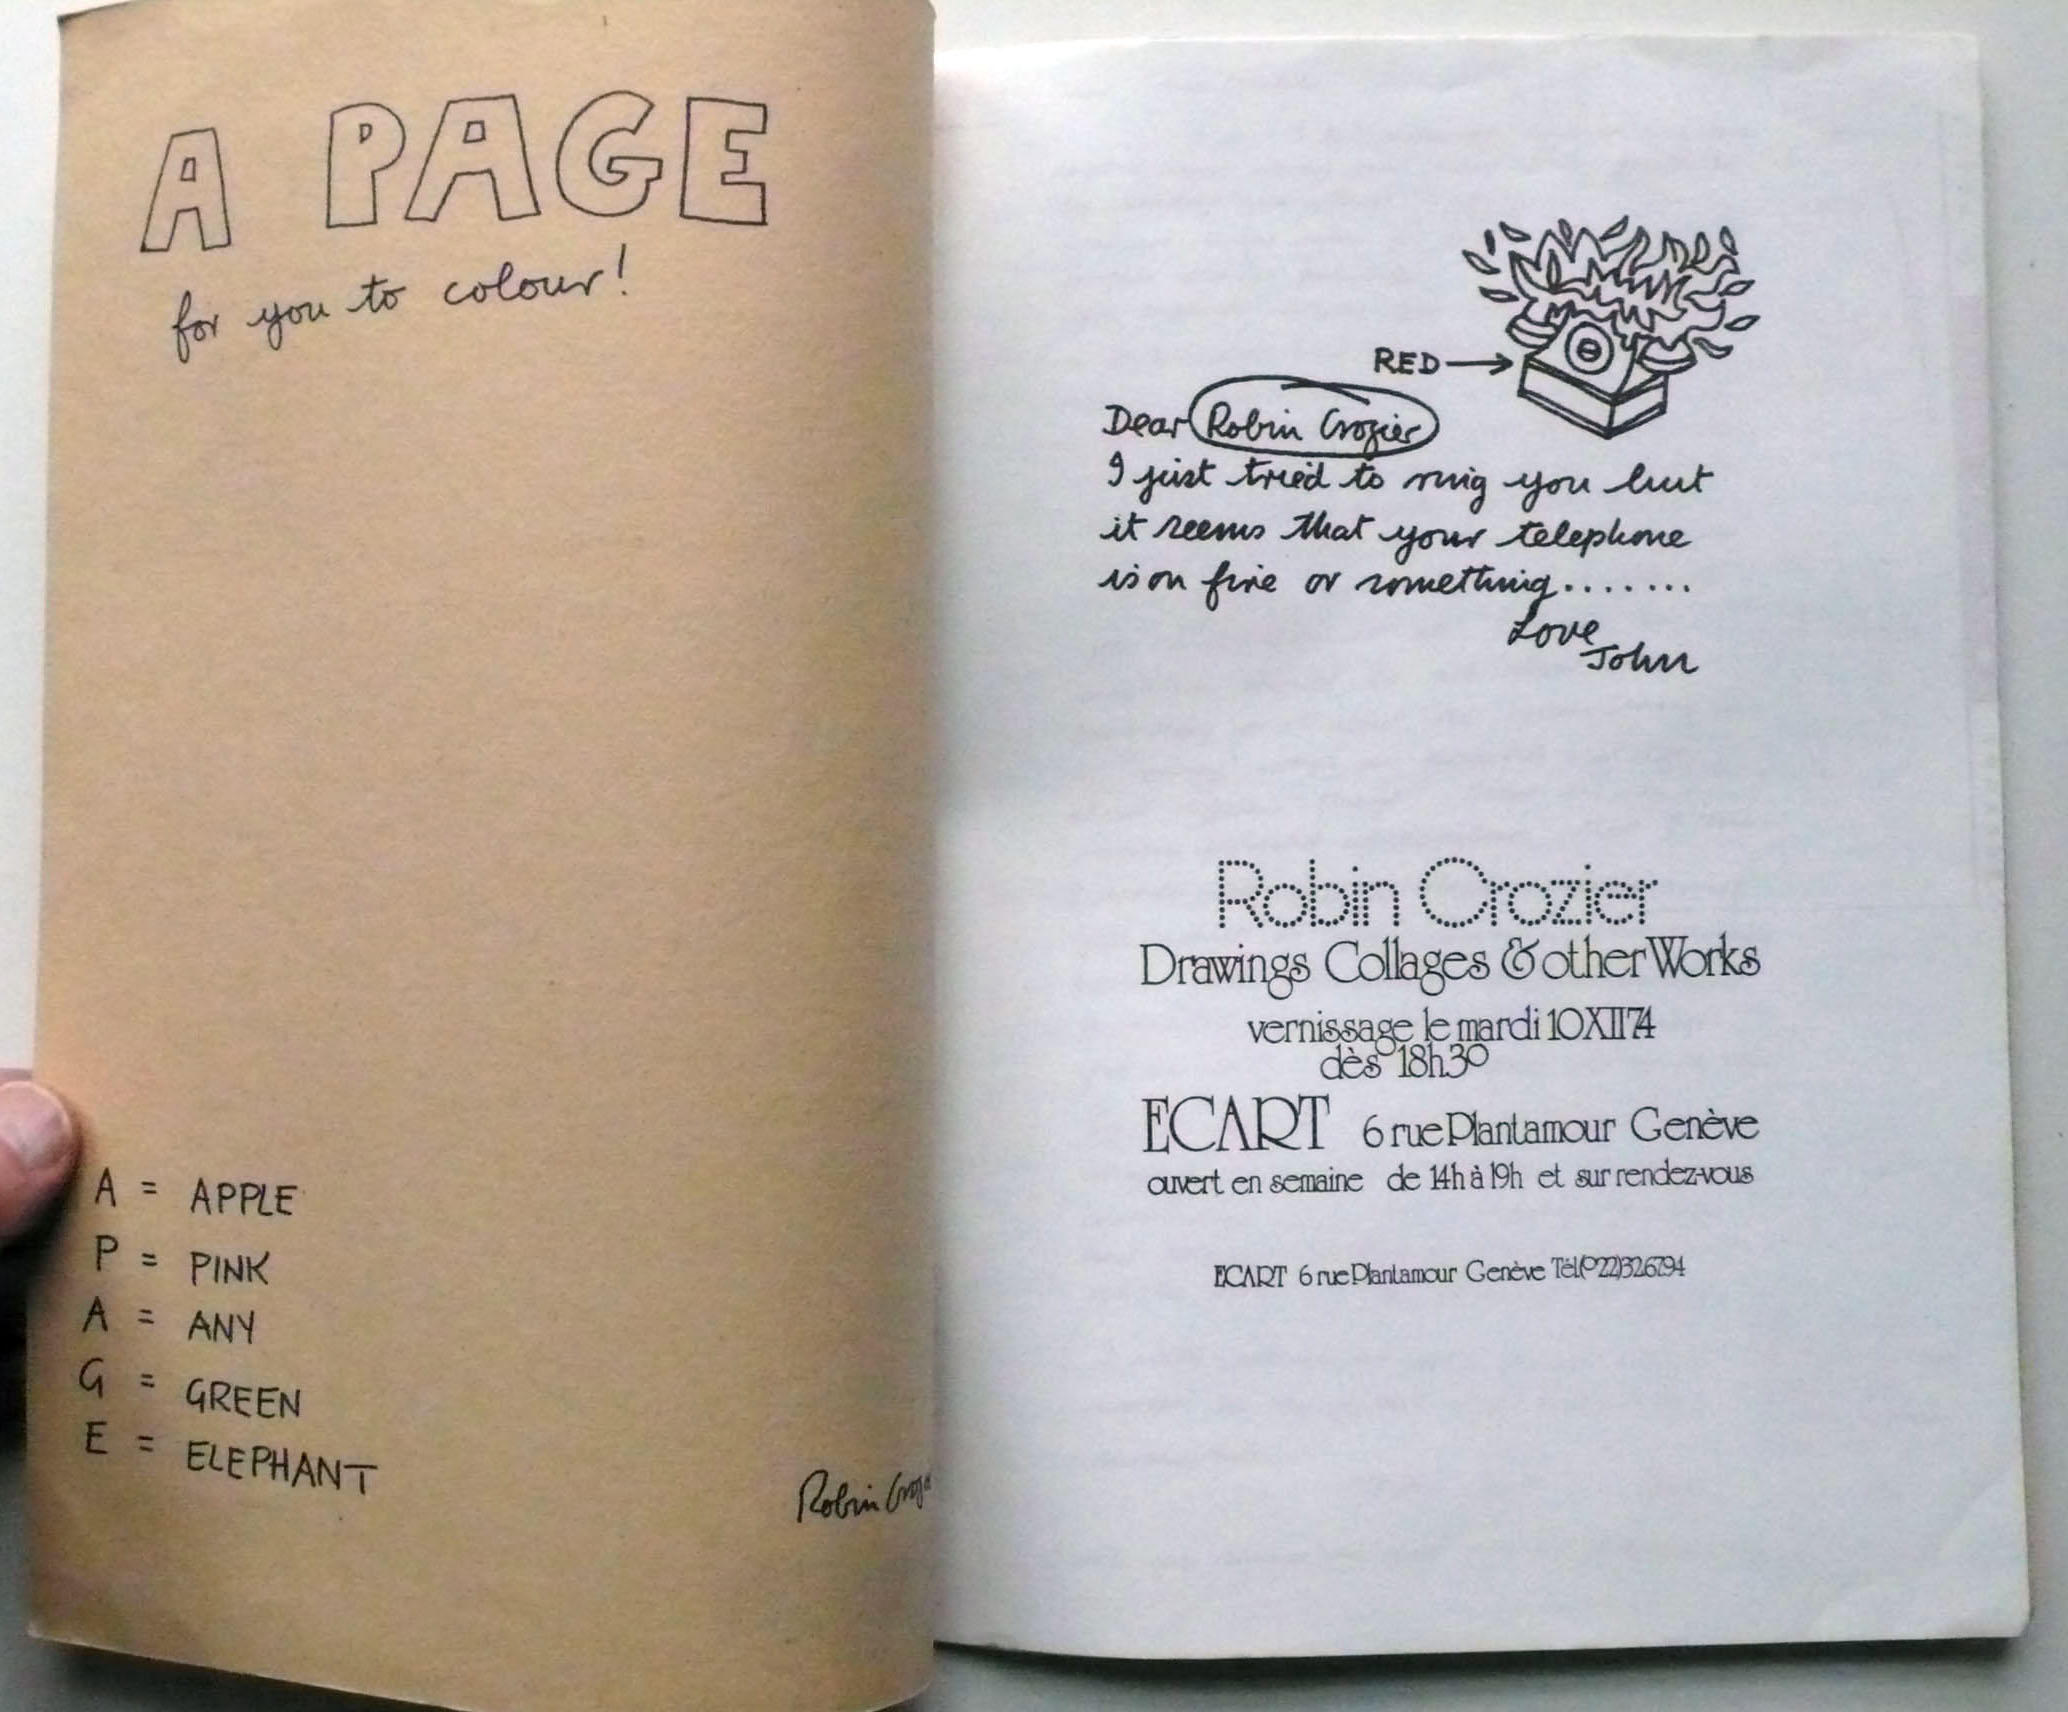 A PAGE
for you to colour!
A = APPLE
P = PINK
A = ANY
G = GREEN
E = ELEPHANT
Robin
RED
Dear Robin Crozier
I just tried to ring you but
it seems that your telephone
is on fire or something.......
Love
John
Robin Crozier
Drawings Collages & other Works
vernissage le mardi 10XII74
dès 18h30
ECART 6 rue Plantamour Genève
ouvert en semaine de 14h à 19h et sur rendez-vous
ECART 6 rue Plantamour Genève Tél.(022)326794